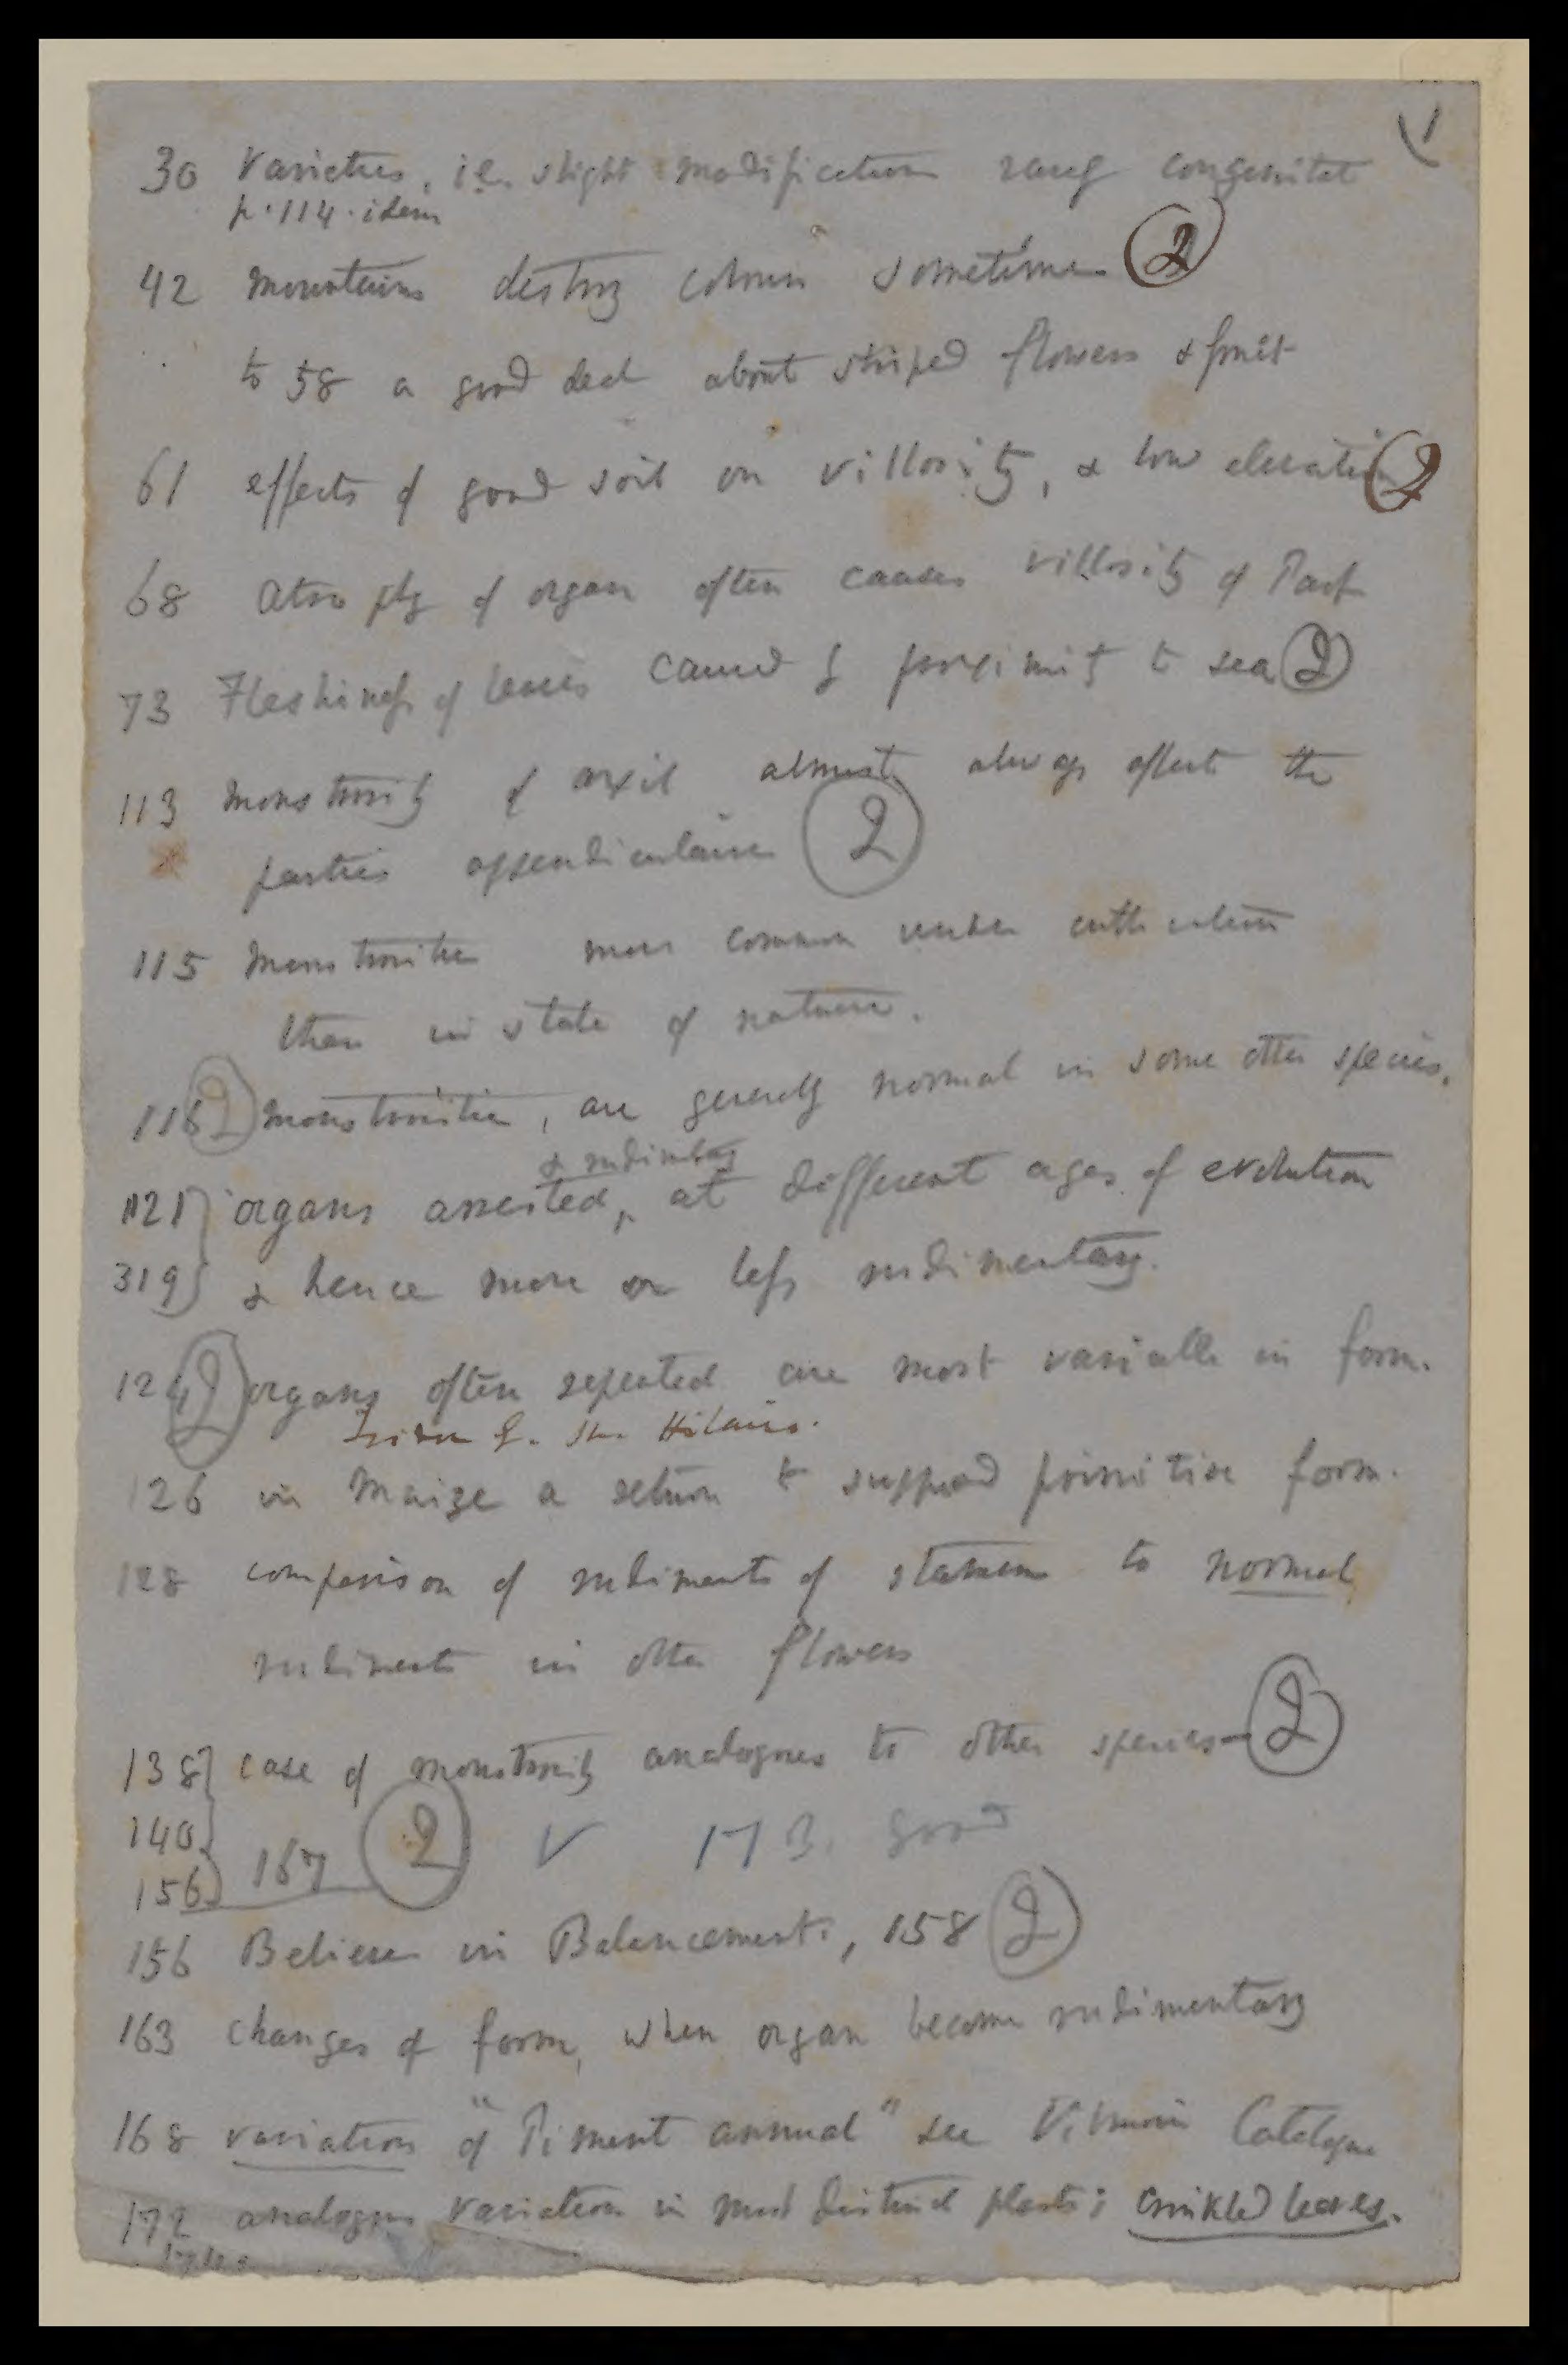 1
30 Varieties, i.e. slight modification rarely congenital
p. 114. idem
42 Mountains destroy colours sometimes (2)
to 58 a good deal about striped flowers & fruit
61 effects of good soil on villosity, & low elevation (2)
68 Atrophy of organ often causes villosity of Part
73 Fleshiness of leaves caused by proximity to sea (2)
113 Monstrosity of axil almost always affects the
parties appendiculaires (2)
115 Monstrosities more common under cultivation
than in state of nature.
116 (2) Monstrosities, are generally normal in some other species.
& rudimentary
121} organs arrested, at different ages of evolution
319} & hence more or less rudimentary.
124 (2) organs often repeated are most variable in form.
Isidor G. St. Hilaire.
126 in Maize a return to supposed primitive form.
128 comparison of rudiments of stamens to normal
rudiments in other flowers
138} case of monstrosity analogous to other species— (2)
140} 167 (2) V 173. good
156}
156 Believes in Balancement, 158 (2)
163 Changes of form, when organ become rudimentary
168 variation of "Piment annual" see Vilmorin Catalogue
172 analogous variation in most distinct plants; crinkled leaves.